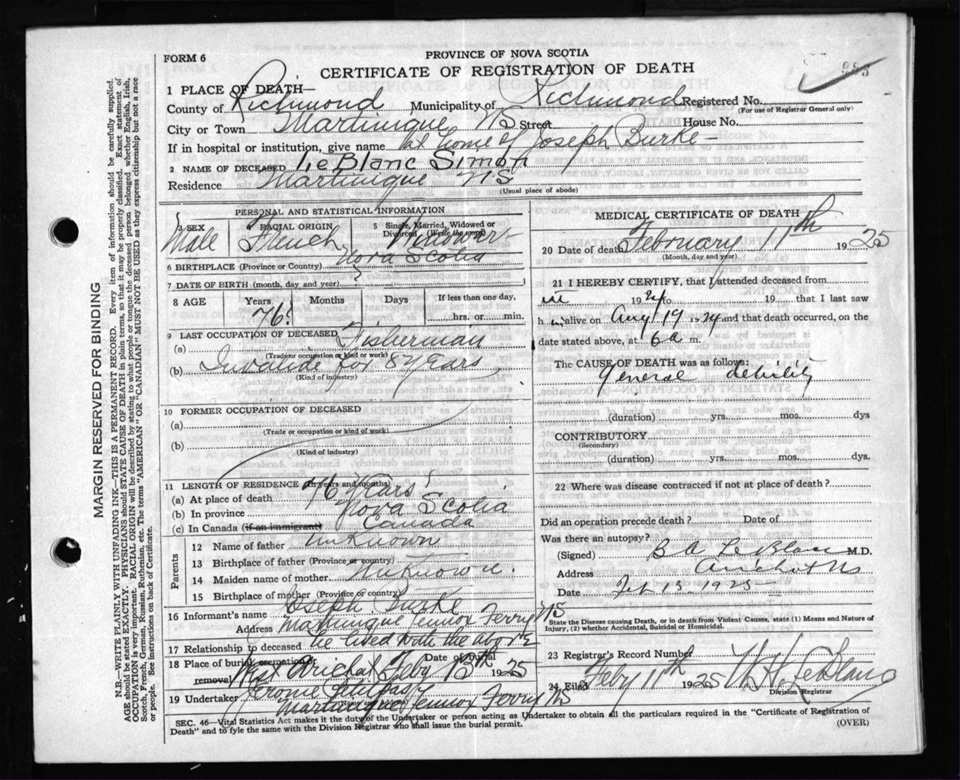 PROVINCE OF NOVA SCOTIA
FORM 6
CERTIFICATE OF REGISTRATION OF DEATH
985
1 PLACE OF DEATH—
County of Richmond Municipality of Richmond Registered No.
(For use of Registrar General only)
City or Town Martinique NS Street House No.
If in hospital or institution, give name at home of Joseph Burke
2 NAME OF DECEASED LeBlanc Simon
Residence Martinique NS
(Usual place of abode)
PERSONAL AND STATISTICAL INFORMATION
3 SEX RACIAL ORIGIN 5 Single, Married, Widowed or Divorced (Write the word)
Male French Widower
6 BIRTHPLACE (Province or Country) Nova Scotia
7 DATE OF BIRTH (month, day and year) ?
8 AGE Years Months Days If less than one day,
76? hrs. or min.
9 LAST OCCUPATION OF DECEASED
(a) Fisherman
(Trade or occupation or kind or work)
(b) for 8 years
(Kind of industry)
10 FORMER OCCUPATION OF DECEASED
(a)
(Trade or occupation or kind of work)
(b)
(Kind of industry)
11 LENGTH OF RESIDENCE (in years and months)
(a) At place of death 76 years
(b) In province Nova Scotia
(c) In Canada (if an immigrant) Canada
Parents
12 Name of father unknown
13 Birthplace of father (Province or country)
14 Maiden name of mother unknown
15 Birthplace of mother (Province or country)
16 Informant's name Joseph Burke
Address Martinique Lennox Ferry NS
17 Relationship to deceased he lived with the above
18 Place of burial, cremation or removal West Arichat Date of Feby 13th 1925
19 Undertaker Jerome
Martinique Lennox Ferry NS
MEDICAL CERTIFICATE OF DEATH
20 Date of death February 11th 1925
(Month, day and year)
21 I HEREBY CERTIFY, that I attended deceased from
in 1924 to 19 that I last saw
h im alive on Aug 19 1924 and that death occurred, on
the date stated above, at 6 a m.
The CAUSE OF DEATH was as follows:
General debility
(duration) yrs. mos. dys
CONTRIBUTORY.
(Secondary)
(duration) yrs. mos. dys.
22 Where was disease contracted if not at place of death?
Did an operation precede death? Date of
Was there an autopsy?
(Signed) B A LeBlanc M.D.
Address Arichat NS
Date Feb 13 1925
State the Disease causing Death, or in death from Violent Causes, state (1) Means and Nature of Injury, (2) whether Accidental, Suicidal or Homicidal.
23 Registrar's Record Number
24 Filed Feby 11th 1925 W. H. LeBlanc
Division Registrar
SEC. 46—Vital Statistics Act makes it the duty of the Undertaker or person acting as Undertaker to obtain all the particulars required in the "Certificate of Registration of
Death" and to fyle the same with the Division Registrar who shall issue the burial permit. (OVER)
MARGIN RESERVED FOR BINDING
N.B.—WRITE PLAINLY WITH UNFADING INK—THIS IS A PERMANENT RECORD. Every item of information should be carefully supplied.
AGE should be stated EXACTLY. PHYSICIANS should STATE CAUSE OF DEATH in plain terms, so that it may be properly classified. Exact statement of
OCCUPATION is very important. RACIAL ORIGIN will be described by stating to what people or tongue the deceased person belonged whether English, Irish,
Scotch, French, German, Russian, Ruthenian, etc. The terms "AMERICAN" or "CANADIAN" MUST NOT BE USED as they express citizenship but not a race
or people. See instructions on back of Certificate.